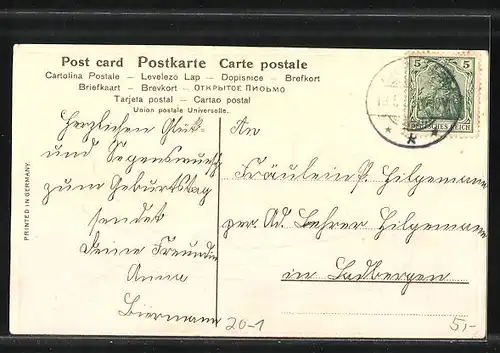 Post card Postkarte Carte postale
Cartolina Postale – Levelező Lap – Dopisnice – Brefkort
Briefkaart – Brevkort – ОТКРЫТОЕ ПИСЬМО
Tarjeta postal – Cartao postal
Union postale Universelle.
PRINTED IN GERMANY.
Herzlichen Glück-
und Segenswunsch
zum Geburtstag
sendet
Deine Freundin
Anna
Biermann
20-1
5 5
DEUTSCHES REICH
An
Fräulein Hilgemann
per. Ad. Lehrer Hilgemann
in Ladbergen
5,-